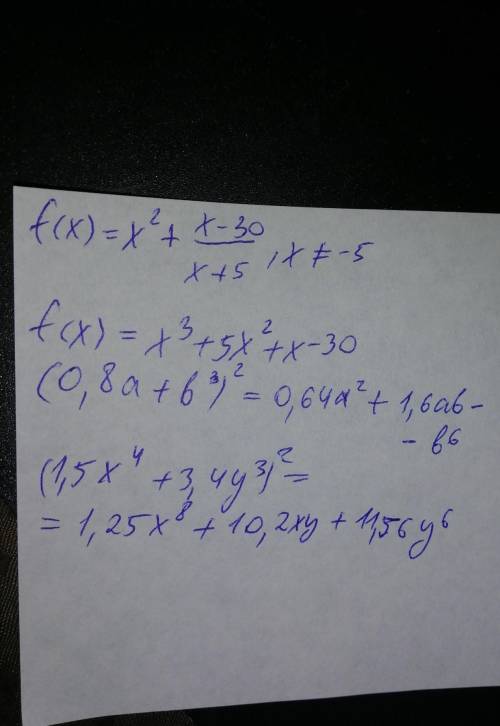 f(x) = x² + \frac{x-30}{x+5}, x ≠ -5
f(x) = x³ + 5x² + x - 30
(0,8a + b³)² = 0,64a² + 1,6ab -
- b⁶
(1,5x⁴ + 3,4y³)² =
= 1,25x⁸ + 10,2xy + 11,56y⁶